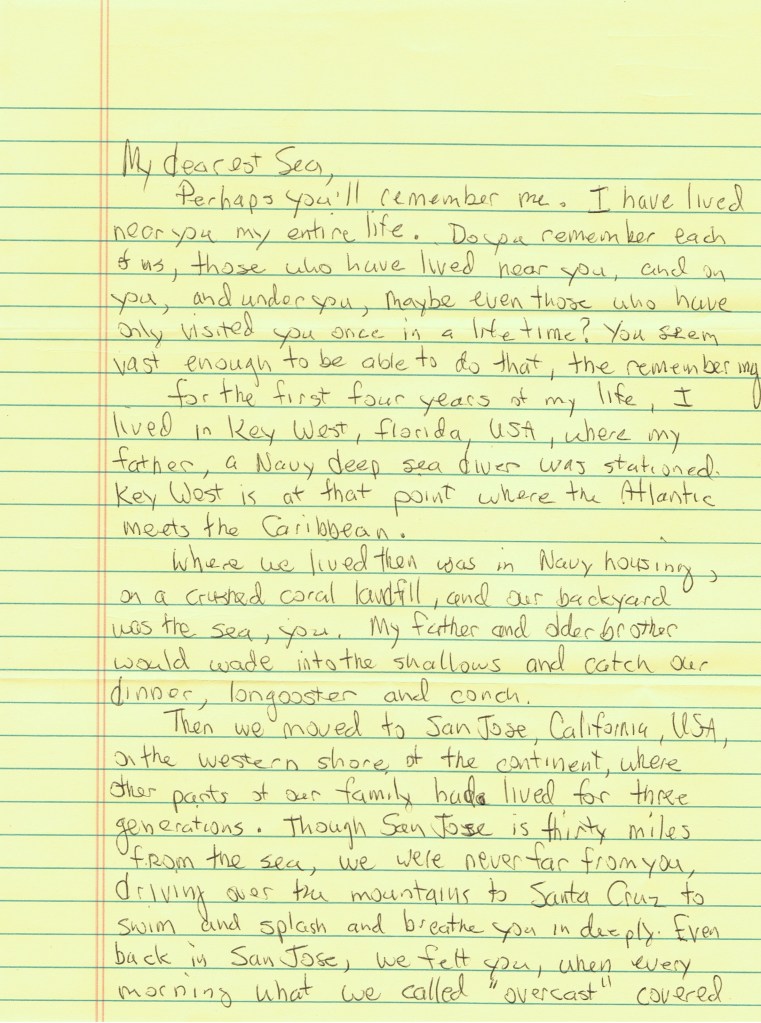 My dearest Sea,
Perhaps you'll remember me. I have lived
near you my entire life. Do you remember each
of us, those who have lived near you, and on
you, and under you, maybe even those who have
only visited you once in a lifetime? You seem
vast enough to be able to do that, the remembering
for the first four years of my life, I
lived in Key West, Florida, USA, where my
father, a Navy deep sea diver was stationed.
Key West is at that point where the Atlantic
meets the Caribbean.
Where we lived then was in Navy housing,
on a crushed coral landfill, and our backyard
was the sea, you. My father and older brother
would wade into the shallows and catch our
dinner, longooster and conch.
Then we moved to San Jose, California, USA,
on the western shore of the continent, where
other parts of our family had lived for three
generations. Though San Jose is thirty miles
from the sea, we were never far from you,
driving over the mountains to Santa Cruz to
swim and splash and breathe you in deeply. Even
back in San Jose, we felt you, when every
morning what we called "overcast" covered